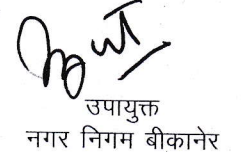 उपायुक्त
नगर निगम बीकानेर